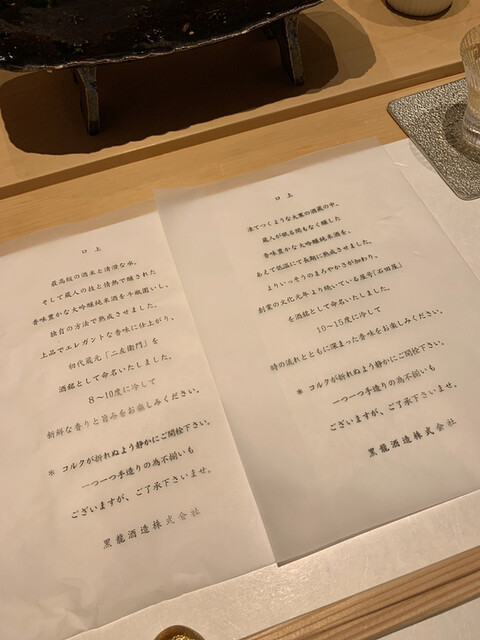 口上
最高級の酒米と清澄な水、
そして蔵人の技と情熱で醸された
香味豊かな大吟醸純米酒を斗瓶囲いし、
独自の方法で熟成させました。
上品でエレガントな香味に仕上がり、
初代蔵元「二左衛門」を
酒銘として命名いたしました。
8〜10度に冷して
新鮮な香りと旨みをお楽しみください。
※ コルクが折れぬよう静かにご開栓下さい。
一つ一つ手造りの為不揃いも
ございますが、ご了承下さいませ。
黒龍酒造株式会社
口上
凍てつくような大寒の酒蔵の中、
蔵人が眠る間もなく醸した
香味豊かな大吟醸純米酒を、
あえて低温にて長期に熟成させました。
よりいっそうのまろやかさが加わり、
創業の文化元年より続いている屋号『石田屋』
を酒銘として命名いたしました。
10〜15度に冷して
時の流れとともに深まった香味をお楽しみください。
※ コルクが折れぬよう静かにご開栓下さい。
一つ一つ手造りの為不揃いも
ございますが、ご了承下さいませ。
黒龍酒造株式会社